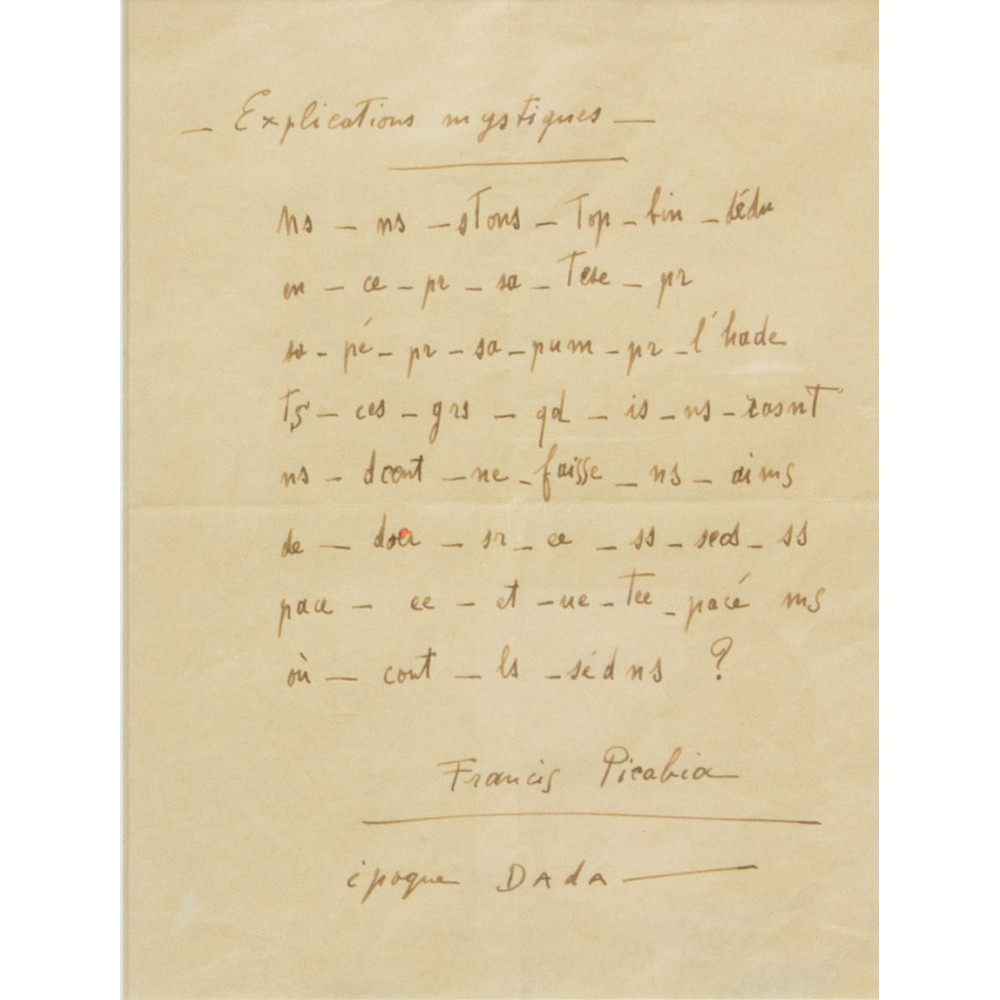 — Explications mystiques —
Ns — ns — stons — Top — bin — dédu
en — ce — pr — sa — Tese — pr
sa — pé — pr — sa — pum — pr — l'hade
ces — grs — qd — is — ns — rasnt
ns — dcont — ne — faisse — ns — aims
de — — sr — ce — ss — secs — ss
pace — ee — et — ue — Tee — pacé ms
où — cont — ls — sédns ?
Francis Picabia
époque DAdA —